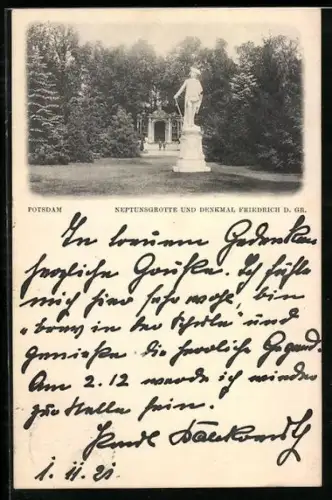 POTSDAM
NEPTUNSGROTTE UND DENKMAL FRIEDRICH D. GR.
In treuem Gedenken
herzliche Grüße. Ich fühle
mich hier sehr wohl, bin
"brav in der Schule" und
genieße die herrliche Gegend.
Am 2.12 werde ich wieder
zur Stelle sein.
1.11.21